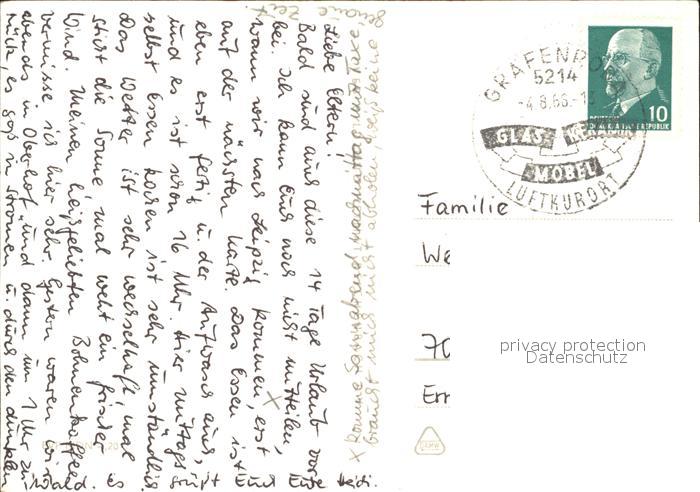 Liebe Eltern!
Bald sind auch diese 14 Tage Urlaub vor-
bei. Ich kann Euch noch nicht mitteilen,
wann wir nach Leipzig kommen, erst
auf der nächsten Karte. Das Essen ist
eben erst fertig u. der Aufwasch auch,
und es ist schon 16 Uhr. Hier mittags
selbst Essen kochen ist sehr umständlich
Das Wetter ist sehr wechselhaft, mal
sticht die Sonne, mal weht ein frischer
Wind. Meinen heißgeliebten Bohnenkaffee
vermisse ich hier sehr. Gestern waren wir
abends in Oberhof und dann um 1 Uhr zu-
rück, es goß in Strömen u. durch den dunklen
Wald. Es
grüßt Euch Eure Heidi.
x komme Sonnabend nachmittag mit Taxe
braucht mich nicht abholen, weiß keine
genaue Zeit
GRÄFENRODA
5214
-4.8.66.-13
GLAS
KERAMIK
MÖBEL
LUFTKURORT
10
DEUTSCHE
DEMOKRATISCHE REPUBLIK
Familie
We
70
Err
privacy protection
Datenschutz